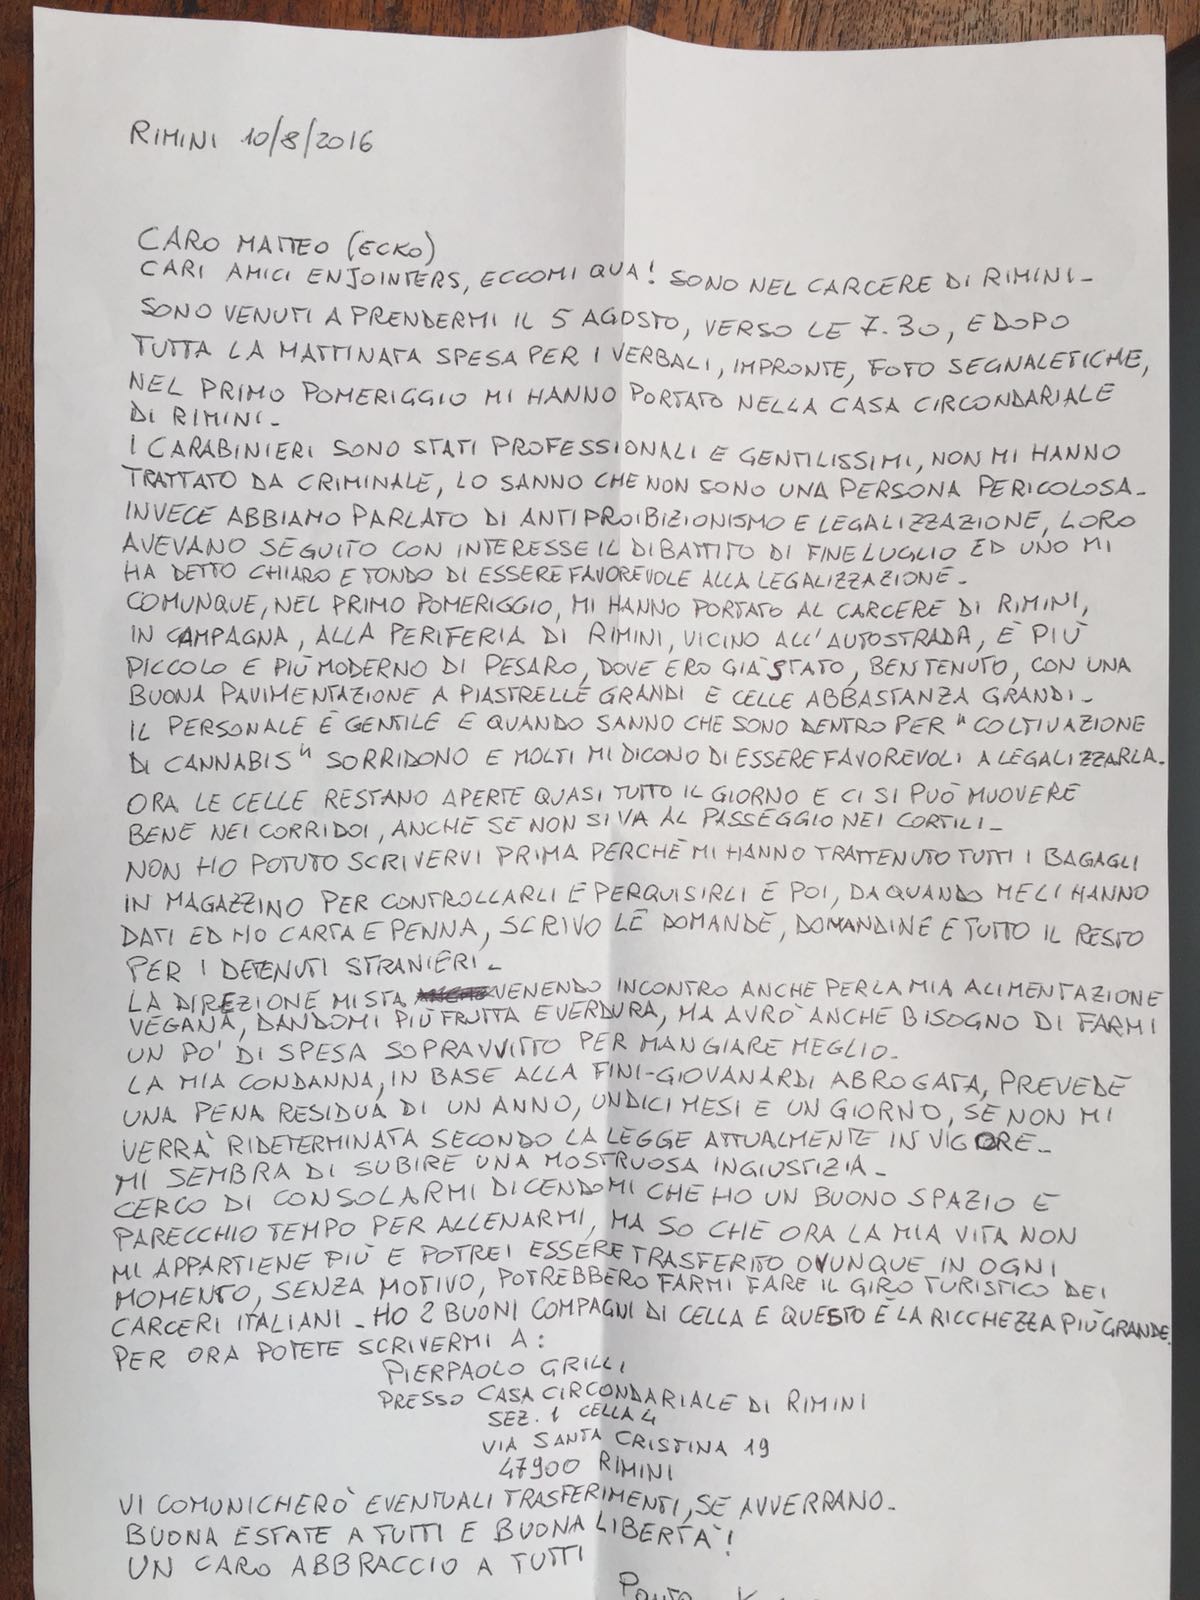 RIMINI 10/8/2016
CARO MATTEO (ECKO)
CARI AMICI ENJOINTERS, ECCOMI QUA! SONO NEL CARCERE DI RIMINI-
SONO VENUTI A PRENDERMI IL 5 AGOSTO, VERSO LE 7.30, E DOPO
TUTTA LA MATTINATA SPESA PER I VERBALI, IMPRONTE, FOTO SEGNALETICHE,
NEL PRIMO POMERIGGIO MI HANNO PORTATO NELLA CASA CIRCONDARIALE
DI RIMINI-
I CARABINIERI SONO STATI PROFESSIONALI E GENTILISSIMI, NON MI HANNO
TRATTATO DA CRIMINALE, LO SANNO CHE NON SONO UNA PERSONA PERICOLOSA-
INVECE ABBIAMO PARLATO DI ANTIPROIBIZIONISMO E LEGALIZZAZIONE, LORO
AVEVANO SEGUITO CON INTERESSE IL DIBATTITO DI FINE LUGLIO ED UNO MI
HA DETTO CHIARO E TONDO DI ESSERE FAVOREVOLE ALLA LEGALIZZAZIONE-
COMUNQUE, NEL PRIMO POMERIGGIO, MI HANNO PORTATO AL CARCERE DI RIMINI,
IN CAMPAGNA, ALLA PERIFERIA DI RIMINI, VICINO ALL'AUTOSTRADA, È PIÙ
PICCOLO E PIÙ MODERNO DI PESARO, DOVE ERO GIÀ STATO, BEN TENUTO, CON UNA
BUONA PAVIMENTAZIONE A PIASTRELLE GRANDI E CELLE ABBASTANZA GRANDI-
IL PERSONALE È GENTILE E QUANDO SANNO CHE SONO DENTRO PER "COLTIVAZIONE
DI CANNABIS" SORRIDONO E MOLTI MI DICONO DI ESSERE FAVOREVOLI A LEGALIZZARLA-
ORA LE CELLE RESTANO APERTE QUASI TUTTO IL GIORNO E CI SI PUÒ MUOVERE
BENE NEI CORRIDOI, ANCHE SE NON SI VA AL PASSEGGIO NEI CORTILI-
NON HO POTUTO SCRIVERVI PRIMA PERCHÈ MI HANNO TRATTENUTO TUTTI I BAGAGLI
IN MAGAZZINO PER CONTROLLARLI E PERQUISIRLI E POI, DA QUANDO ME LI HANNO
DATI ED HO CARTA E PENNA, SCRIVO LE DOMANDE, DOMANDINE E TUTTO IL RESTO
PER I DETENUTI STRANIERI-
LA DIREZIONE MI STA VENENDO INCONTRO ANCHE PER LA MIA ALIMENTAZIONE
VEGANA, DANDOMI PIÙ FRUTTA E VERDURA, MA AVRÒ ANCHE BISOGNO DI FARMI
UN PO' DI SPESA SOPRAVVITTO PER MANGIARE MEGLIO-
LA MIA CONDANNA, IN BASE ALLA FINI-GIOVANARDI ABROGATA, PREVEDE
UNA PENA RESIDUA DI UN ANNO, UNDICI MESI E UN GIORNO, SE NON MI
VERRÀ RIDETERMINATA SECONDO LA LEGGE ATTUALMENTE IN VIGORE-
MI SEMBRA DI SUBIRE UNA MOSTRUOSA INGIUSTIZIA-
CERCO DI CONSOLARMI DICENDOMI CHE HO UN BUONO SPAZIO E
PARECCHIO TEMPO PER ALLENARMI, MA SO CHE ORA LA MIA VITA NON
MI APPARTIENE PIÙ E POTREI ESSERE TRASFERITO OVUNQUE IN OGNI
MOMENTO, SENZA MOTIVO, POTREBBERO FARMI FARE IL GIRO TURISTICO DEI
CARCERI ITALIANI- HO 2 BUONI COMPAGNI DI CELLA E QUESTO È LA RICCHEZZA PIÙ GRANDE.
PER ORA POTETE SCRIVERMI A:
PIERPAOLO GRILLI
PRESSO CASA CIRCONDARIALE DI RIMINI
SEZ. 1 CELLA 4
VIA SANTA CRISTINA 19
47900 RIMINI
VI COMUNICHERÒ EVENTUALI TRASFERIMENTI, SE AVVERRANO-
BUONA ESTATE A TUTTI E BUONA LIBERTÀ!
UN CARO ABBRACCIO A TUTTI